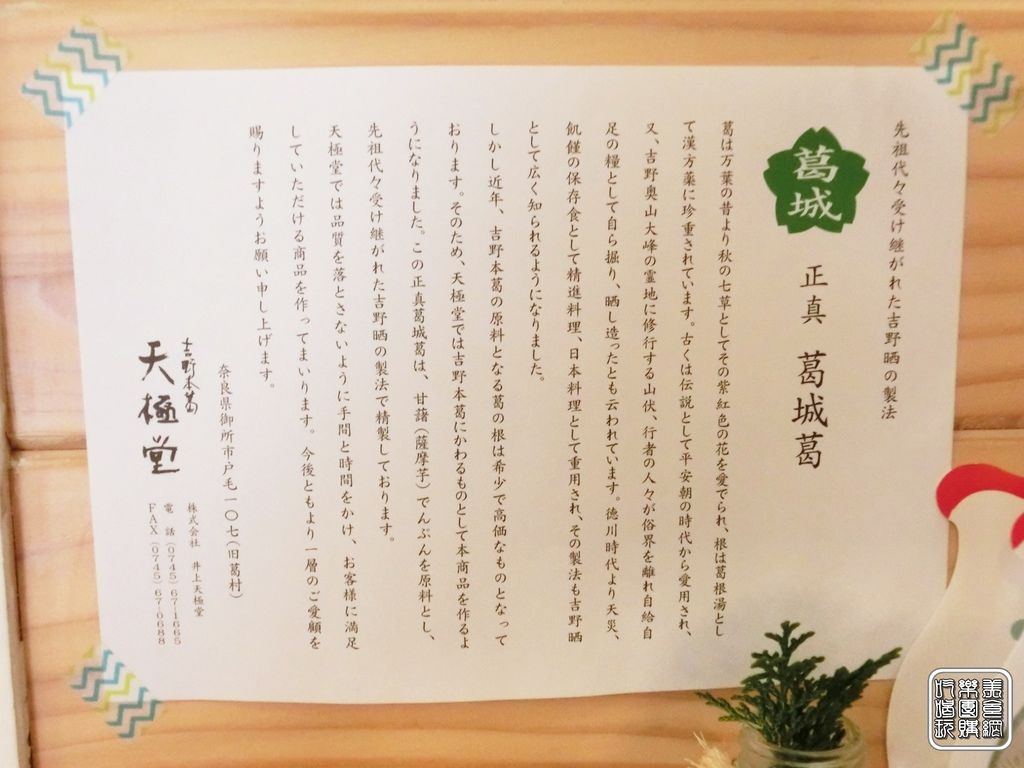 先祖代々受け継がれた吉野晒の製法
葛城
正真 葛城葛
葛は万葉の昔より秋の七草としてその紫紅色の花を愛でられ、根は葛根湯とし
て漢方薬に珍重されています。古くは伝説として平安朝の時代から愛用され、
又、吉野奥山大峰の霊地に修行する山伏、行者の人々が俗界を離れ自給自
足の糧として自ら掘り、晒し造ったとも云われています。徳川時代より天災、
飢饉の保存食として精進料理、日本料理として重用され、その製法も吉野晒
として広く知られるようになりました。
しかし近年、吉野本葛の原料となる葛の根は希少で高価なものとなって
おります。そのため、天極堂では吉野本葛にかわるものとして本商品を作るよ
うになりました。この正真葛城葛は、甘藷(薩摩芋)でんぷんを原料とし、
先祖代々受け継がれた吉野晒の製法で精製しております。
天極堂では品質を落とさないように手間と時間をかけ、お客様に満足
していただける商品を作ってまいります。今後ともより一層のご愛顧を
賜りますようお願い申し上げます。
奈良県御所市戸毛一〇七(旧葛村)
吉野本葛
天極堂
株式会社 井上天極堂
電話(0745)67-1665
FAX(0745)67-0688
美食網
樂團購